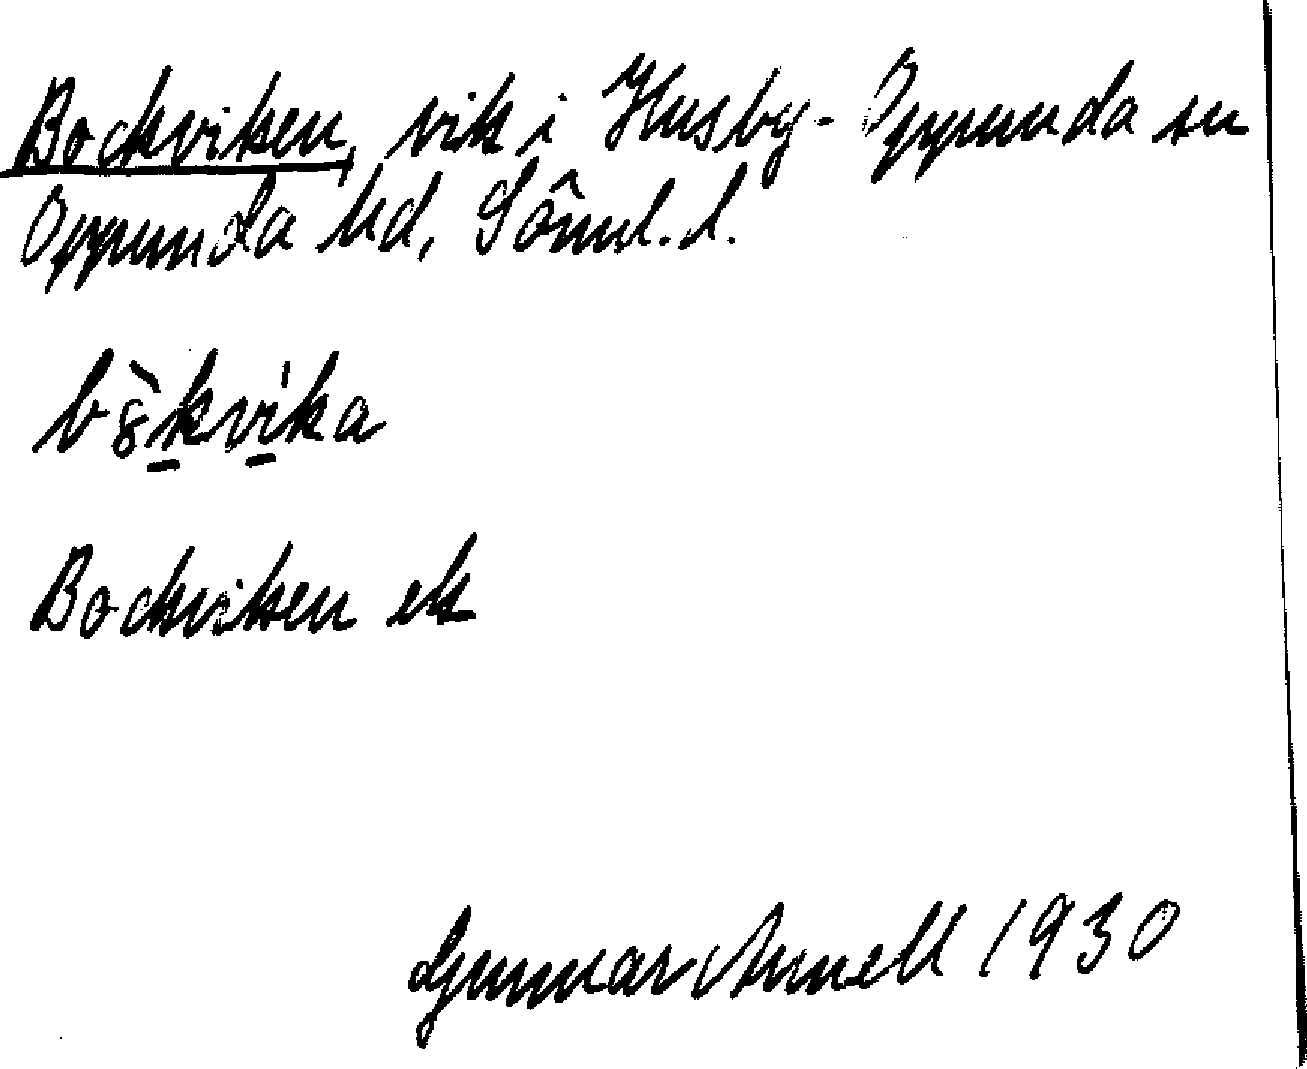 Bockviken, vik i Husby-Oppunda sn
Oppunda hd, Sörml. l.
b8̀kvi̍ka
Bockviken ek
Gunnar Arnell 1930